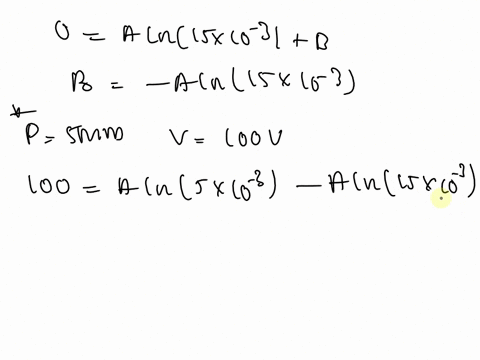 0 = A ln(15×10⁻³) + B
B = -A ln(15×10⁻³)
* P = 5mm V = 100V
100 = A ln(5×10⁻³) - A ln(15×10⁻³)